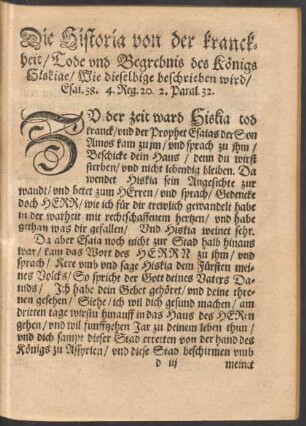 Die Historia von der kranck-
heit / Tode vnd Begrebnis des Königs
Hiskiae / Wie dieselbige beschrieben wird /
Esai. 38. 4. Reg. 20. 2. Paral. 32.
ZV der zeit ward Hiskia tod
kranck / vnd der Prophet Esaias der Son
Amos kam zu jm / vnd sprach zu jhm /
Beschicke dein Haus / denn du wirst
sterben / vnd nicht lebendig bleiben. Da
wendet Hiskia sein Angesichte zur
wandt / vnd betet zum HErren / vnd sprach / Gedencke
doch HERR / wie ich für dir trewlich gewandelt habe
in der warheit mit rechtschaffenem hertzen / vnd habe
gethan was dir gefallen / Vnd Hiskia weinet sehr.
Da aber Esaia noch nicht zur Stad halb hinaus
war / kam das Wort des HERRN zu jhm / vnd
sprach / Kere vmb vnd sage Hiskia dem Fürsten mei-
nes Volcks / So spricht der Gott deines Vaters Da-
uids / Ich habe dein Gebet gehöret / vnd deine thre-
nen gesehen / Siehe / ich wil dich gesund machen / am
dritten tage wirstu hinauff in das Haus des HErrn
gehen / vnd wil funfftzehen Jar zu deinem leben thun /
vnd dich sampt dieser Stad erretten von der hand des
Königs zu Assyrien / vnd diese Stad beschirmen vmb
d iij meinet